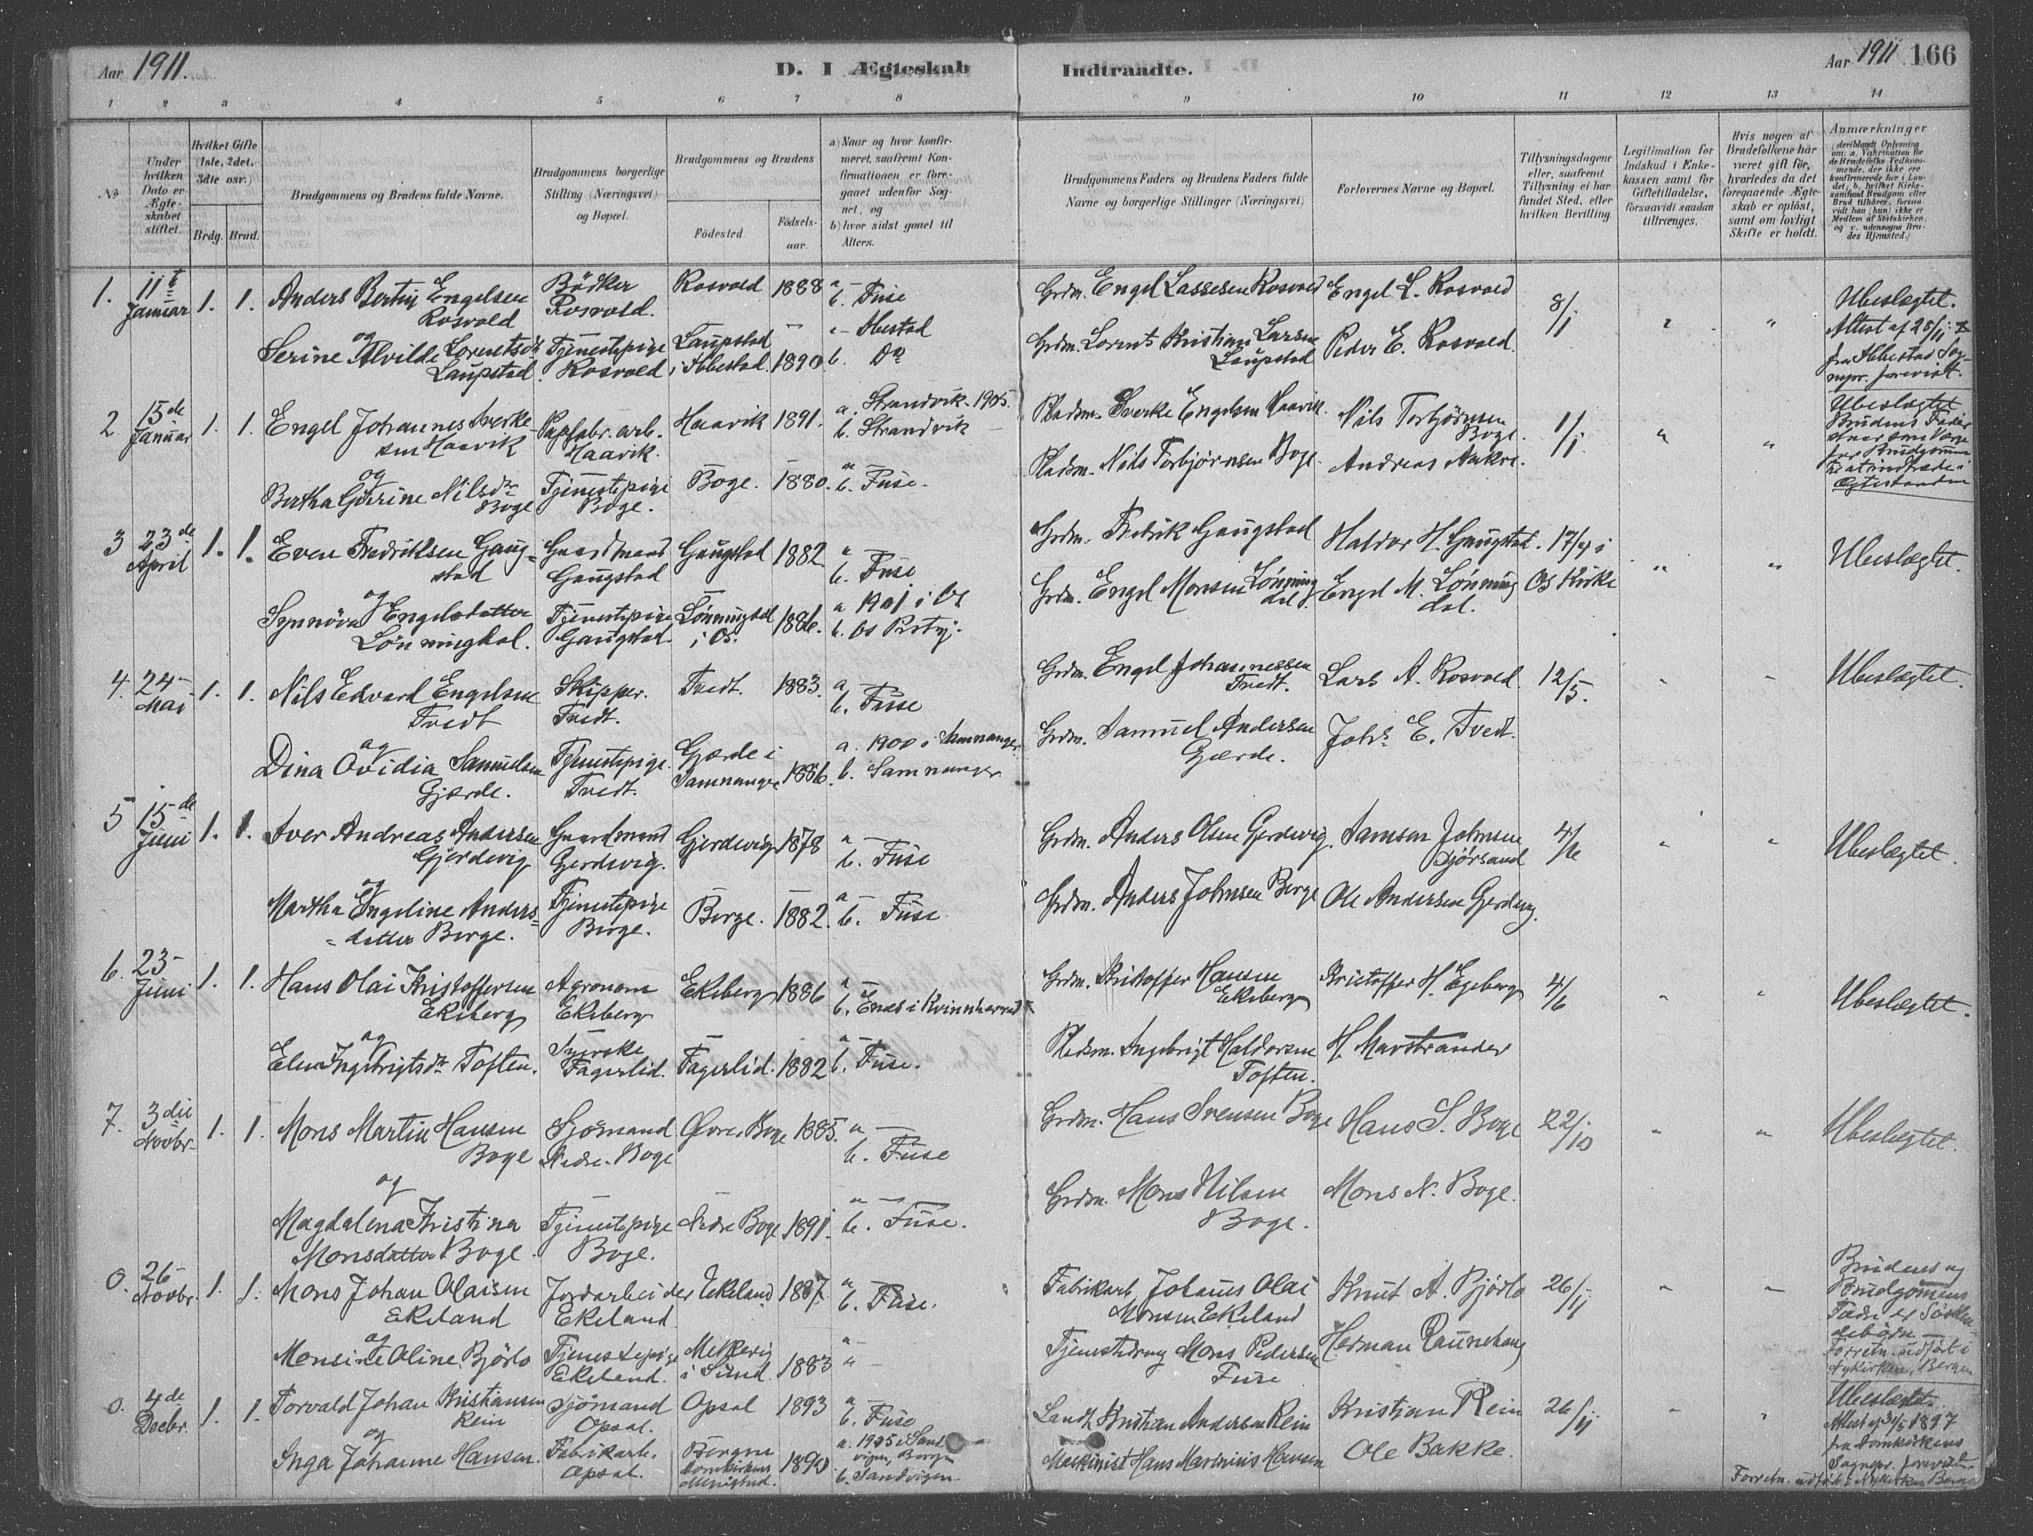 Aar 1911.
D. I Ægteskab
Indtraadte.
Aar 1911 166
1 2 3 4 5 6 7 8
9 10 11 12 13 14
No
Under hvilken Dato er Ægteskabet stiftet.
Hvilket Gifte (1ste, 2det, 3die osv.)
Brdg. Brud.
Brudgommens og Brudens fulde Navne.
Brudgommens borgerlige Stilling (Næringsvei) og Bopæl.
Brudgommens og Brudens
Fødested.
Fødselsaar.
a) Naar og hvor konfirmeret, saafremt Konfirmationen er foregaaet udenfor Sognet, og
b) hvor sidst gaaet til Alters.
Brudgommens Faders og Brudens Faders fulde Navne og borgerlige Stillinger (Næringsvei)
Forlovernes Navne og Bopæl.
Tillysningsdagene eller, saafremt Tillysning ei har fundet Sted, efter hvilken Bevilling.
Legitimation for Indskud i Enkekassen samt for Giftetilladelse, forsaavidt saadan tiltrænges.
Hvis nogen af Brudefolkene har været gift før, hvorledes da det foregaaende Ægteskab er opløst, samt om lovligt Skifte er holdt.
Anmærkninger
1. 11te Januar 1. 1. Anders Bertin Engelsen Rosvold Bödker Rosvold. Rosvold 1888 a – b. Fuse Grdm. Engel Lassesen Rosvold Engel L. Rosvold 8/1 Ubeslægtet. Attest af 25/11
og Serine Alvilde Lorentsdtr Laupstad. Tjenestepige Rosvold Laupstad i Ibbestad. 1890 a – Ibestad b. Do Grdm. Lorents Kristian Larsen Laupstad Peder E. Rosvold. fra Ibbestad Sognepr. forevist.
2 15de Januar 1. 1. Engel Johannes Sverkesen Haavik Papfabr. arb. Haavik. Haavik 1891. a. Strandvik 1905. b. Strandvik Pladsm. Sverke Engelsen Haavik. Nils Torbjørnsen Boge. 1/1 Ubeslægtet
og Bertha Gurine Nilsdtr Boge Tjenestepige Boge. Boge. 1880. a – b. Fuse. Pladsm. Nils Torbjørnsen Boge. Andreas Aakre.
3 23de April 1. 1. Even Fredriksen Gaugstad Gaardmand Gaugstad Gaugstad 1882 a – b. Fuse Grdm. Fredrik Gaugstad Haldor H. Gaugstad. 17/4 i Os Kirke Ubeslægtet.
og Synnöve Engelsdatter Lönningdal. Tjenestepige Gaugstad Lönningdal i Os. 1886. a 1901 i Os b. Os Prstgj. Grdm. Engel Monsen Lønningdal. Engel M. Lønningdal.
4. 24 Mai 1. 1. Nils Edvard Engelsen Tvedt Skipper. Tvedt. Tvedt. 1883. a – b. Fuse Grdm. Engel Johannessen Tvedt. Lars A. Rosvold. 12/5. Ubeslægtet.
og Dina Ovidia Samuelsen Gjærde. Tjenestepige. Tvedt. Gjærde i Samnanger 1886. a. 1900 i Samnanger b. Samnanger Grdm. Samuel Andersen Gærde. Johs E. Tvedt.
5 15de Juni 1. 1. Iver Andreas Andersen Gjerdevig Gaardmand Gerdevig. Gjerdevig 1878 a – b. Fuse Grdm. Anders Olsen Gerdevig. Samson Johnsen Bjørsand 4/6 Ubeslægtet.
og Martha Engeline Andersdatter Berge. Tjenestepige Berge. Berge. 1882. a – b. Fuse Grdm. Anders Johnsen Berge Ole Andersen Gerdevig.
6. 23 Juni 1. 1. Hans Olai Kristoffersen Ekeberg Agronom Ekeberg Ekeberg 1886 a – b. Enes i Kvinnherred Grdm. Kristoffer Hansen Ekeberg Kristoffer H. Egeberg 4/6 Ubeslægtet.
og Elen Ingebrigtsdtr Toften. Syerske Fagerlid. Fagerlid. 1882 a – b. Fuse. Pladsm. Ingebrigt Haldorsen Toften. H. Mavstrander
7. 3die Novbr. 1. 1. Mons Martin Hansen Boge Sjømand Nedre Boge Øvre Boge 1885. a – b. Fuse Grdm. Hans Svensen Boge Hans S. Boge 22/10 Ubeslægtet.
og Magdalena Kristina Monsdatter Boge. Tjenestepige Boge. Nedre Boge 1891. a – b. Fuse. Grdm. Mons Nilsen Boge. Mons N. Boge.
0. 26 Novbr. 1. 1. Mons Johan Olaisen Ekeland Jordarbeider Ekeland Ekeland 1887. a – b. Fuse. Fabrikarb. Johannes Olai Monsen Ekeland Knut A. Bjørlo 26/11 Brudens og Brudgommens Fædre er Søskendebørn Forretn. udført i Nykirken, Bergen
og Monsine Oline Bjørlo Tjenestepige Ekeland. i Sund. 1883 Tjenestedreng Mons Pedersen Fuse Herman Raunehaug
0. 4de Decbr. 1. 1. Torvald Johan Kristiansen Rein Sjömand Opsal. Opsal 1893 a – b. Fuse Landh. Kristian Andersen Rein Kristian Rein 26/11 Ubeslægtet. Attest af 31/5 1897 fra Domkirkens Sognepr. forevist.
og Inga Johanne Hansen. Fabrikarb. Opsal. Bergen Domkirkens Menighed. 1890. a. 1905 i Sandvigen, Bergen b. Sandvigen Maskinist Hans Marinius Hansen Ole Bakke. Forretn. udført i Nykirken Bergen